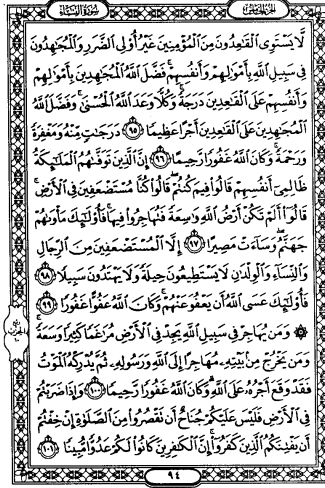 الجزء الخامس
سورة النساء
لَّا يَسْتَوِي الْقَاعِدُونَ مِنَ الْمُؤْمِنِينَ غَيْرُ أُولِي الضَّرَرِ وَالْمُجَاهِدُونَ
فِي سَبِيلِ اللَّهِ بِأَمْوَالِهِمْ وَأَنفُسِهِمْ فَضَّلَ اللَّهُ الْمُجَاهِدِينَ بِأَمْوَالِهِمْ
وَأَنفُسِهِمْ عَلَى الْقَاعِدِينَ دَرَجَةً وَكُلًّا وَعَدَ اللَّهُ الْحُسْنَى وَفَضَّلَ اللَّهُ
الْمُجَاهِدِينَ عَلَى الْقَاعِدِينَ أَجْرًا عَظِيمًا ٩٥ دَرَجَاتٍ مِّنْهُ وَمَغْفِرَةً
وَرَحْمَةً وَكَانَ اللَّهُ غَفُورًا رَّحِيمًا ٩٦ إِنَّ الَّذِينَ تَوَفَّاهُمُ الْمَلَائِكَةُ
ظَالِمِي أَنفُسِهِمْ قَالُوا فِيمَ كُنتُمْ قَالُوا كُنَّا مُسْتَضْعَفِينَ فِي الْأَرْضِ
قَالُوا أَلَمْ تَكُنْ أَرْضُ اللَّهِ وَاسِعَةً فَتُهَاجِرُوا فِيهَا فَأُولَٰئِكَ مَأْوَاهُمْ
جَهَنَّمُ وَسَاءَتْ مَصِيرًا ٩٧ إِلَّا الْمُسْتَضْعَفِينَ مِنَ الرِّجَالِ
وَالنِّسَاءِ وَالْوِلْدَانِ لَا يَسْتَطِيعُونَ حِيلَةً وَلَا يَهْتَدُونَ سَبِيلًا ٩٨
فَأُولَٰئِكَ عَسَى اللَّهُ أَن يَعْفُوَ عَنْهُمْ وَكَانَ اللَّهُ عَفُوًّا غَفُورًا ٩٩
۞ وَمَن يُهَاجِرْ فِي سَبِيلِ اللَّهِ يَجِدْ فِي الْأَرْضِ مُرَاغَمًا كَثِيرًا وَسَعَةً
وَمَن يَخْرُجْ مِن بَيْتِهِ مُهَاجِرًا إِلَى اللَّهِ وَرَسُولِهِ ثُمَّ يُدْرِكْهُ الْمَوْتُ
فَقَدْ وَقَعَ أَجْرُهُ عَلَى اللَّهِ وَكَانَ اللَّهُ غَفُورًا رَّحِيمًا ١٠٠ وَإِذَا ضَرَبْتُمْ
فِي الْأَرْضِ فَلَيْسَ عَلَيْكُمْ جُنَاحٌ أَن تَقْصُرُوا مِنَ الصَّلَاةِ إِنْ خِفْتُمْ
أَن يَفْتِنَكُمُ الَّذِينَ كَفَرُوا إِنَّ الْكَافِرِينَ كَانُوا لَكُمْ عَدُوًّا مُّبِينًا ١٠١
٩٤